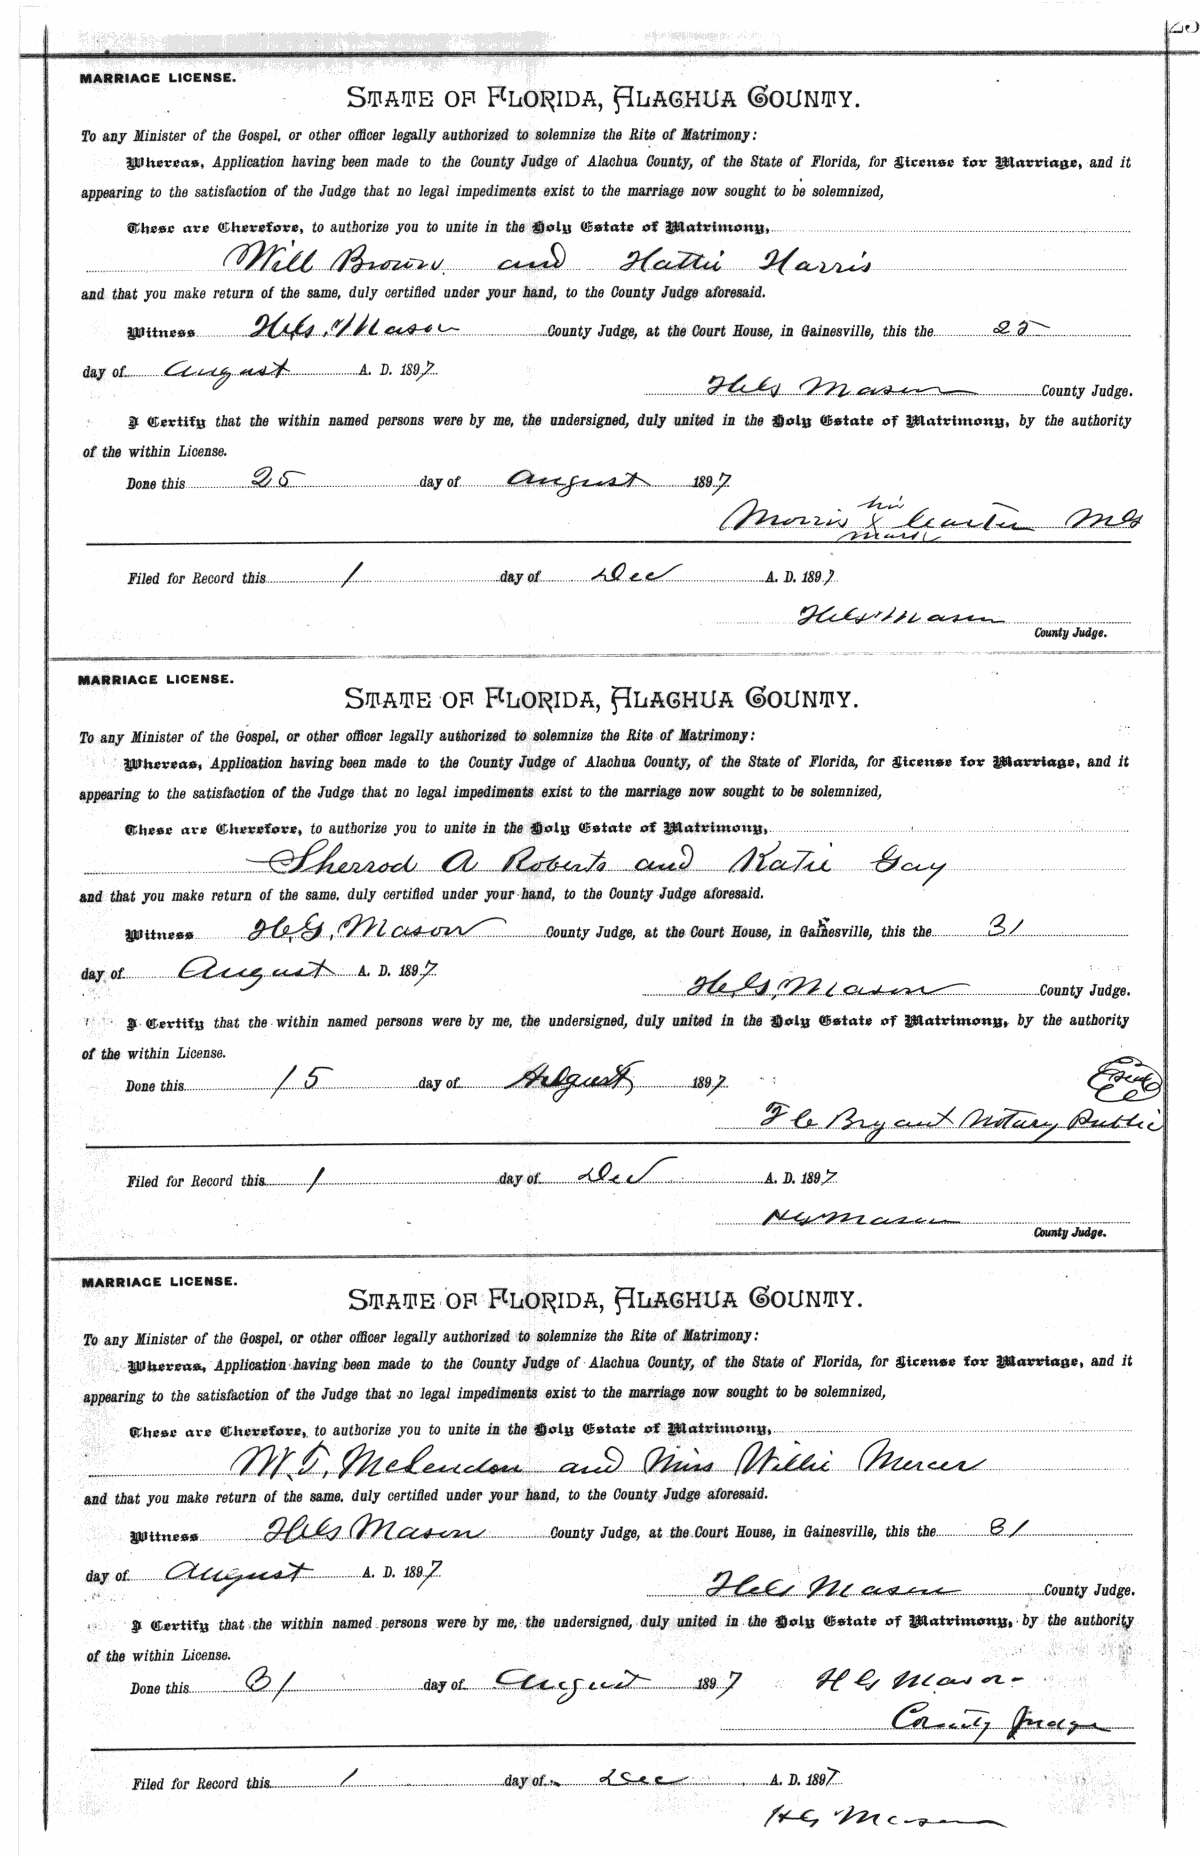 MARRIAGE LICENSE.
STATE OF FLORIDA, ALACHUA COUNTY.
To any Minister of the Gospel, or other officer legally authorized to solemnize the Rite of Matrimony:
Whereas, Application having been made to the County Judge of Alachua County, of the State of Florida, for License for Marriage, and it
appearing to the satisfaction of the Judge that no legal impediments exist to the marriage now sought to be solemnized,
These are Therefore, to authorize you to unite in the Holy Estate of Matrimony,
Will Brown and Hattie Harris
and that you make return of the same, duly certified under your hand, to the County Judge aforesaid.
Witness H.G. Mason County Judge, at the Court House, in Gainesville, this the 25
day of August A. D. 1897
H G Mason County Judge.
I Certify that the within named persons were by me, the undersigned, duly united in the Holy Estate of Matrimony, by the authority
of the within License.
Done this 25 day of August 1897
his
Morris X Carter MG
mark
Filed for Record this 1 day of Dec A. D. 1897
H G Mason
County Judge.
MARRIAGE LICENSE.
STATE OF FLORIDA, ALACHUA COUNTY.
To any Minister of the Gospel, or other officer legally authorized to solemnize the Rite of Matrimony:
Whereas, Application having been made to the County Judge of Alachua County, of the State of Florida, for License for Marriage, and it
appearing to the satisfaction of the Judge that no legal impediments exist to the marriage now sought to be solemnized,
These are Therefore, to authorize you to unite in the Holy Estate of Matrimony,
Sherrod A Roberts and Katie Gay
and that you make return of the same, duly certified under your hand, to the County Judge aforesaid.
Witness H.G. Mason County Judge, at the Court House, in Gainesville, this the 31
day of August A. D. 1897
H.G. Mason County Judge.
I Certify that the within named persons were by me, the undersigned, duly united in the Holy Estate of Matrimony, by the authority
of the within License.
Done this 15 day of August 1897
F C Bryant Notary Public
Filed for Record this 1 day of Dec A. D. 1897
H G Mason
County Judge.
MARRIAGE LICENSE.
STATE OF FLORIDA, ALACHUA COUNTY.
To any Minister of the Gospel, or other officer legally authorized to solemnize the Rite of Matrimony:
Whereas, Application having been made to the County Judge of Alachua County, of the State of Florida, for License for Marriage, and it
appearing to the satisfaction of the Judge that no legal impediments exist to the marriage now sought to be solemnized,
These are Therefore, to authorize you to unite in the Holy Estate of Matrimony,
W. T. McLendon and Miss Willie Mercer
and that you make return of the same, duly certified under your hand, to the County Judge aforesaid.
Witness H G Mason County Judge, at the Court House, in Gainesville, this the 31
day of August A. D. 1897
H G Mason County Judge.
I Certify that the within named persons were by me, the undersigned, duly united in the Holy Estate of Matrimony, by the authority
of the within License.
Done this 31 day of August 1897 H G Mason
County Judge
Filed for Record this 1 day of Dec A. D. 1897
H G Mason